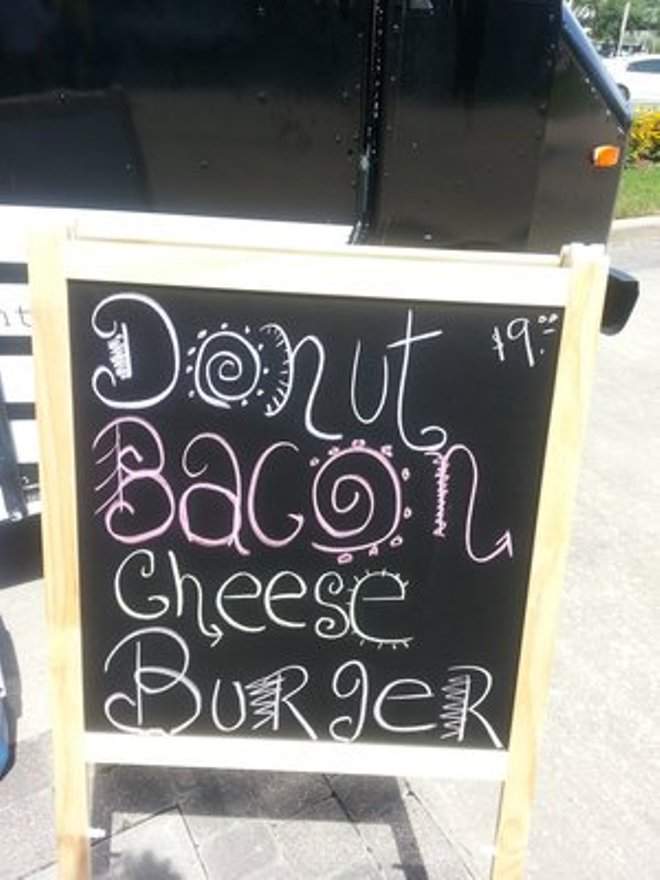 Donut $9.00
Bacon
Cheese
BURgeR